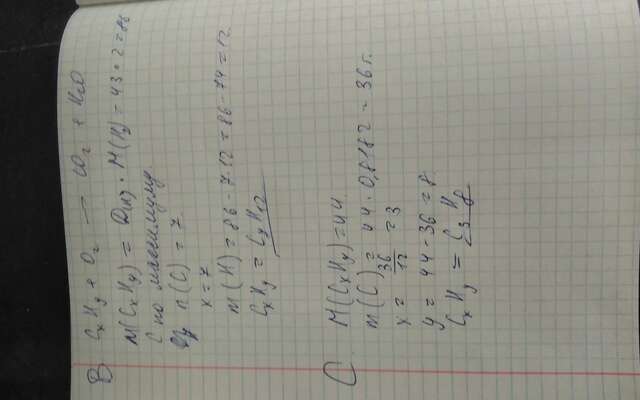 B CxHy + O2 — CO2 + H2O
M(CxHy) = D(H2) · M(H2) = 43 · 2 = 86
C по максимуму
n(C) = 7
x = 7
m(H) = 86 - 7·12 = 86 - 74 = 12
CxHy = C7H12
C M(CxHy) = 44
m(C) = 44 · 0,8182 = 36 г.
x = 36/12 = 3
y = 44 - 36 = 8
CxHy = C3H8